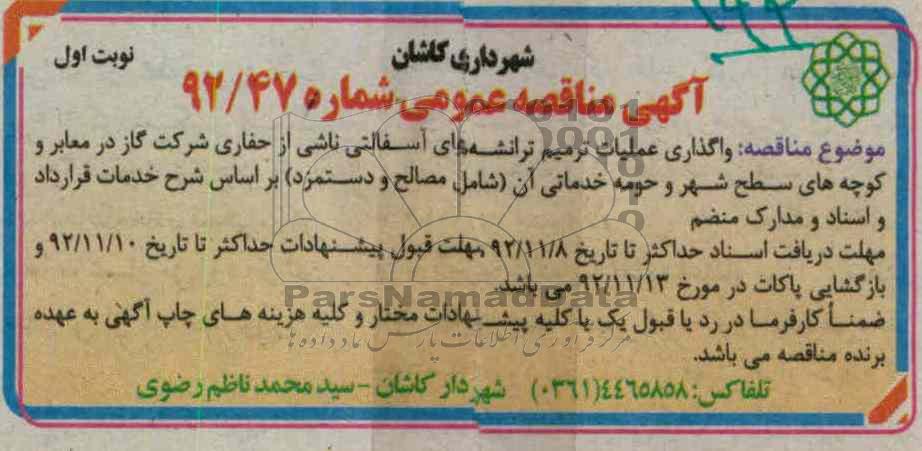 شهرداری کاشان
نوبت اول
آگهی مناقصه عمومی شماره ۹۲/۴۷
موضوع مناقصه: واگذاری عملیات ترمیم ترانشه‌های آسفالتی ناشی از حفاری شرکت گاز در معابر و
کوچه های سطح شهر و حومه خدماتی آن (شامل مصالح و دستمزد) بر اساس شرح خدمات قرارداد
و اسناد و مدارک منضم
مهلت دریافت اسناد حداکثر تا تاریخ ۹۲/۱۱/۸ مهلت قبول پیشنهادات حداکثر تا تاریخ ۹۲/۱۱/۱۰ و
بازگشایی پاکات در مورخ ۹۲/۱۱/۱۳ می باشد.
ضمناً کارفرما در رد یا قبول یک یا کلیه پیشنهادات مختار و کلیه هزینه های چاپ آگهی به عهده
برنده مناقصه می باشد.
تلفاکس: ۴۴۶۵۸۵۸(۰۳۶۱) شهردار کاشان - سید محمد ناظم رضوی
ParsNamadData
مرکز فرآوری اطلاعات پارس نماد داده ها